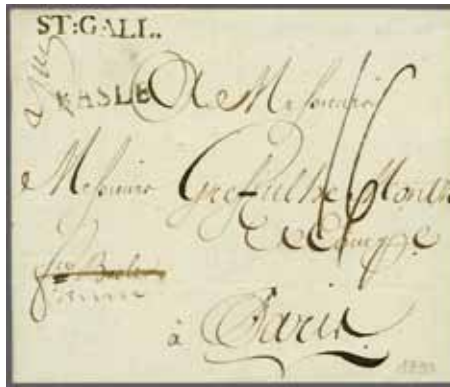 ST:GALL.
BASLE A Messieurs
Messieurs Greffulhe Montz
& Compe.
à Paris.